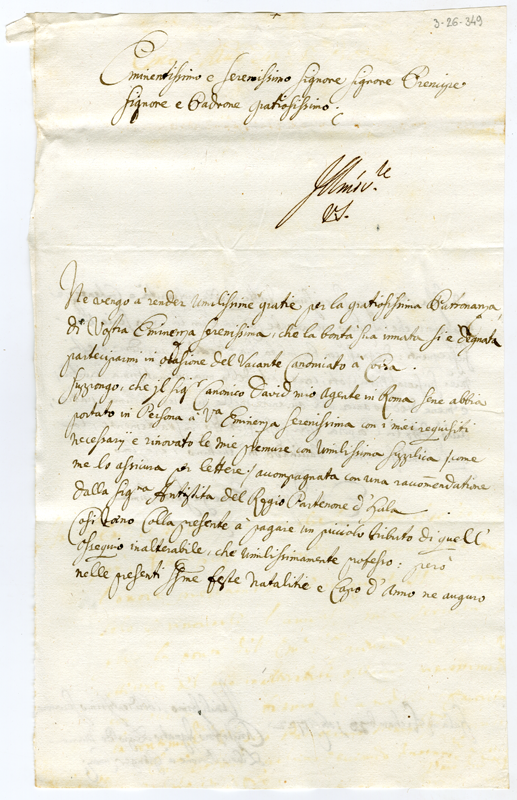 3-26-349
Eminentissimo e serenissimo signore signore Prencipe
signore e Padrone gratiosissimo
Ne vengo à render umilissime gratie per la gratiosissima
di Vostra Eminenza serenissima, che la bontà sua innata si è degnata
participarmi in occasione del Vacante Canonicato à Coira
suppongo, che jl sigr Canonico David mio Agente in Roma sene abbia
portato in Persona à Va Eminenza serenissima con i miei requisiti
necessarij e rinovato le mie premure con Umilissima supplica, come
me lo assicura per lettere, accompagnata con una raccomendatione
dalla sigra Antistita del Regio Partenone d'Hala
Cosi vano colla presente à pagare un piccolo tributo di quell'
ossequio inalterabile, che umilissimamente professo: però
nelle presenti SSme feste Natalitie e Capo d'Anno ne auguro